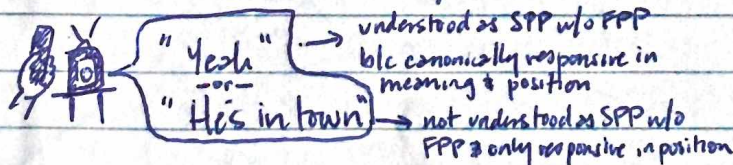 "Yeah"
-or-
"He's in town"
→ understood as SPP w/o FPP
b/c canonically responsive in
meaning & position
→ not understood as SPP w/o
FPP & only responsive in position